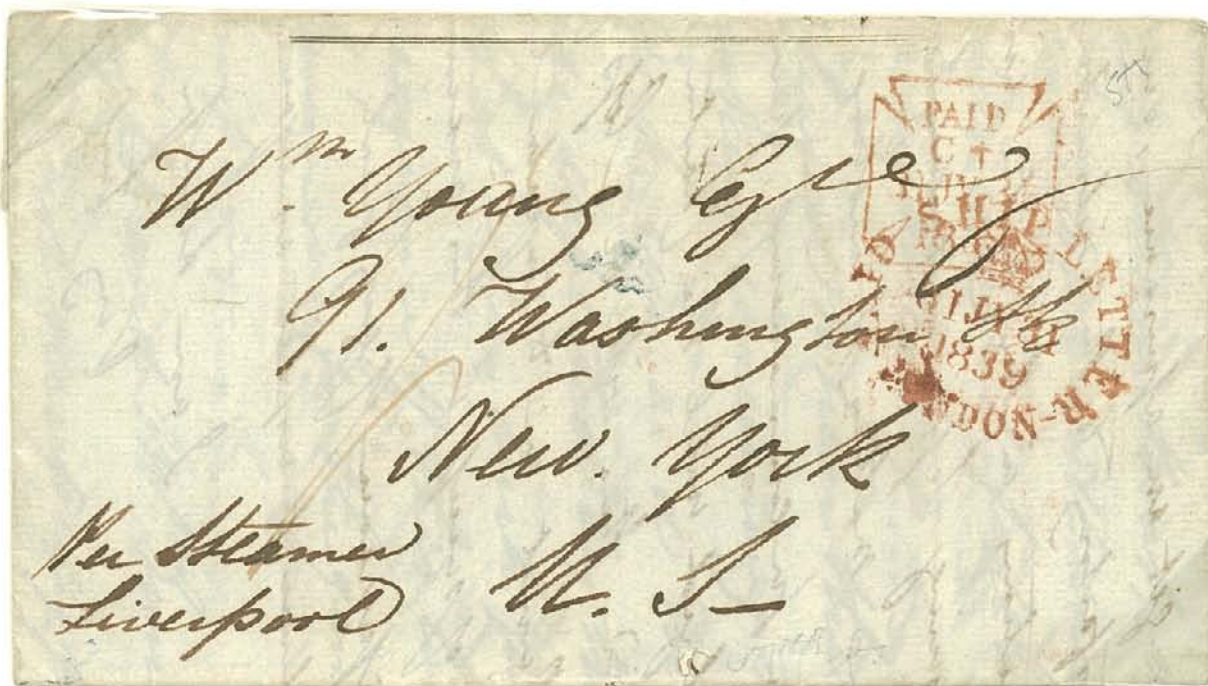 Wm Young Esqre
91. Washington St
New York
U. S
Per Steamer
Liverpool
PAID
C +
1839
SHIP LETTER
1839
-LONDON-